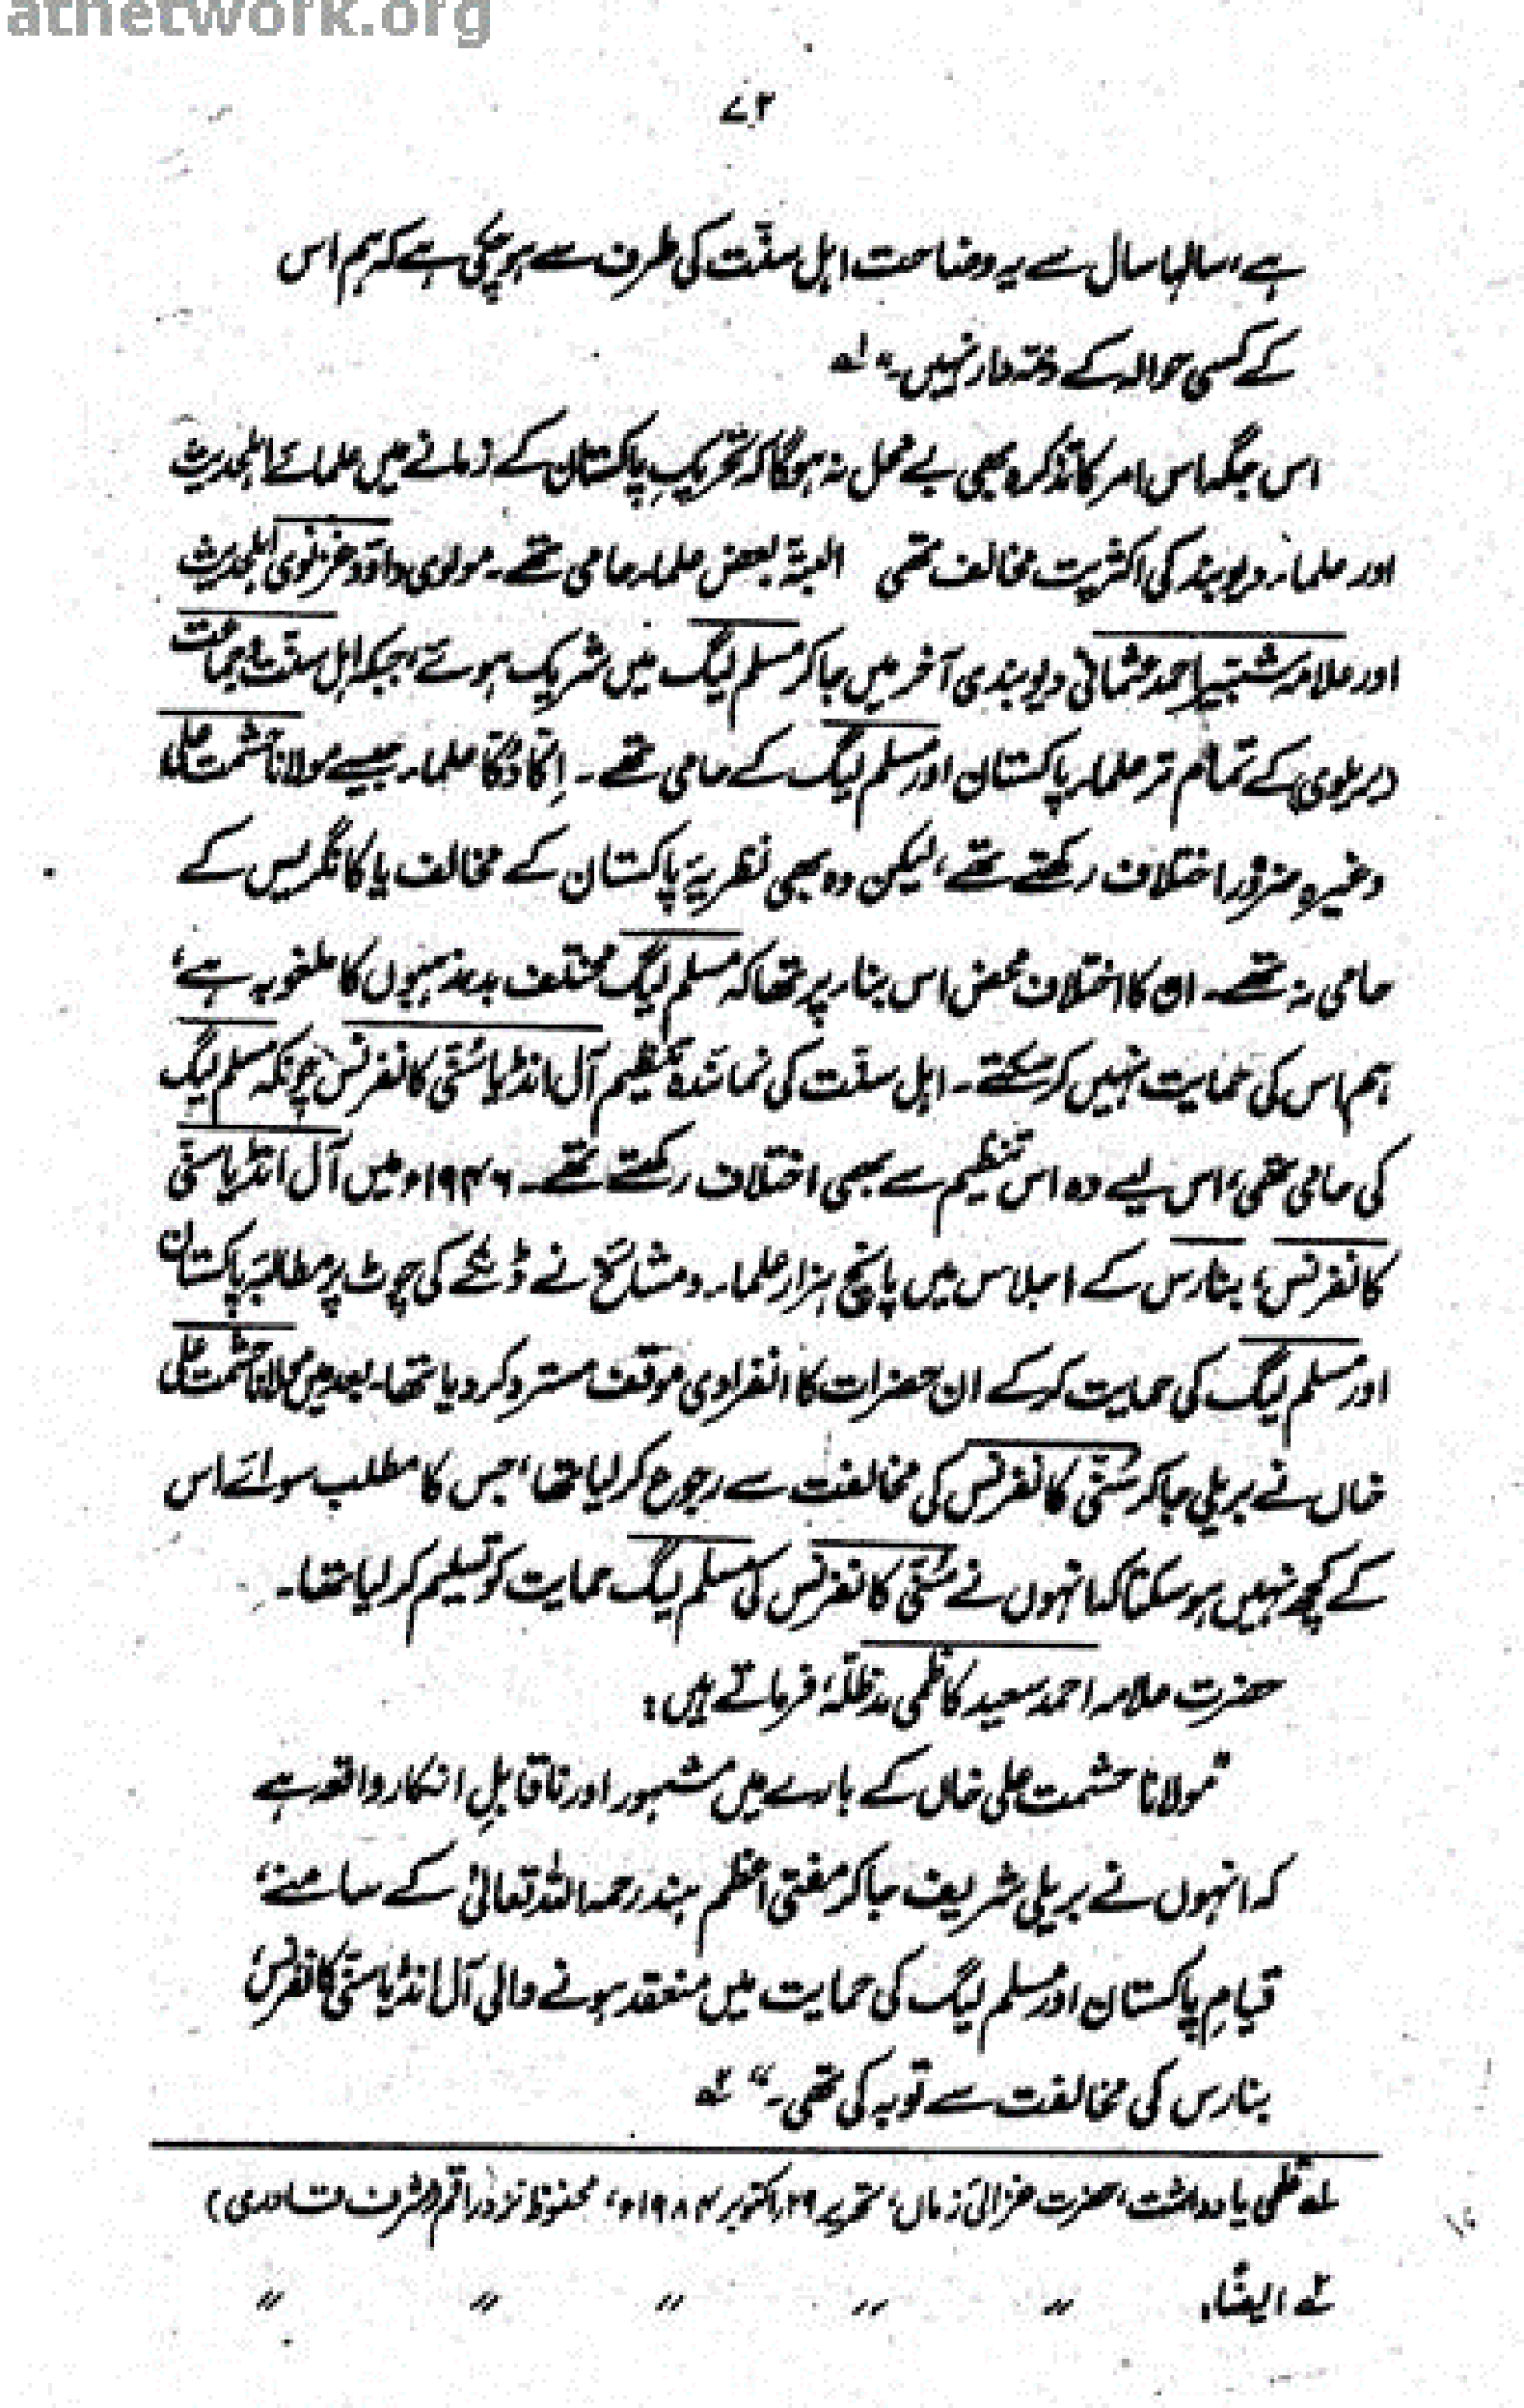 athetwork.org
۷۲
ہے، سالہا سال سے یہ وضاحت اہل سنّت کی طرف سے ہو چکی ہے کہ ہم اس
کے کسی حوالہ کے ذمّہ دار نہیں۔" لہ
اس جگہ اس امر کا تذکرہ بھی بے محل نہ ہوگا کہ تحریکِ پاکستان کے زمانے میں علمائے اہلحدیث
اور علماء دیوبند کی اکثریت مخالف تھی البتہ بعض علماء حامی تھے۔ مولوی داؤد غزنوی اہلحدیث
اور علامہ شبیر احمد عثمانی دیوبندی آخر میں جا کر مسلم لیگ میں شریک ہوئے، جبکہ اہل سنّت وجماعت
(بریلوی) کے تمام تر علماء پاکستان اور مسلم لیگ کے حامی تھے۔ اِکّا دُکّا علماء جیسے مولانا حشمت علی
وغیرہ ضرور اختلاف رکھتے تھے، لیکن وہ بھی نظریۂ پاکستان کے مخالف یا کانگریس کے
حامی نہ تھے۔ ان کا اختلاف محض اس بناء پر تھا کہ مسلم لیگ مختلف بدمذہبیوں کا ملغوبہ ہے،
ہم اس کی حمایت نہیں کر سکتے۔ اہل سنّت کی نمائندہ تنظیم آل انڈیا سُنّی کانفرنس چونکہ مسلم لیگ
کی حامی تھی، اس لیے وہ اس تنظیم سے بھی اختلاف رکھتے تھے۔ ۱۹۴۶ء میں آل انڈیا سُنّی
کانفرنس، بنارس کے اجلاس میں پانچ ہزار علماء و مشائخ نے ڈنکے کی چوٹ پر مطالبۂ پاکستان
اور مسلم لیگ کی حمایت کر کے ان حضرات کا انفرادی موقف مسترد کر دیا تھا۔ بعد میں مولانا حشمت علی
خاں نے بریلی جا کر سُنّی کانفرنس کی مخالفت سے رجوع کر لیا تھا، جس کا مطلب سوائے اس
کے کچھ نہیں ہو سکتا کہ انہوں نے سُنّی کانفرنس کی مسلم لیگ حمایت کو تسلیم کر لیا تھا۔
حضرت علامہ احمد سعید کاظمی مدظلّہٗ فرماتے ہیں:
"مولانا حشمت علی خاں کے بارے میں مشہور اور ناقابلِ انکار واقعہ ہے
کہ انہوں نے بریلی شریف جا کر مفتی اعظم ہند رحمہ اللہ تعالیٰ کے سامنے،
قیامِ پاکستان اور مسلم لیگ کی حمایت میں منعقد ہونے والی آل انڈیا سُنّی کانفرنس،
بنارس کی مخالفت سے توبہ کی تھی۔" ۲ہ
لہ قلمی یادداشت، حضرت غزالیٔ زماں، تحریر ۲۹؍اکتوبر ۱۹۸۴ء، محفوظ نزد راقم (شرف قادری)
۲ہ ایضًا، " " " " "